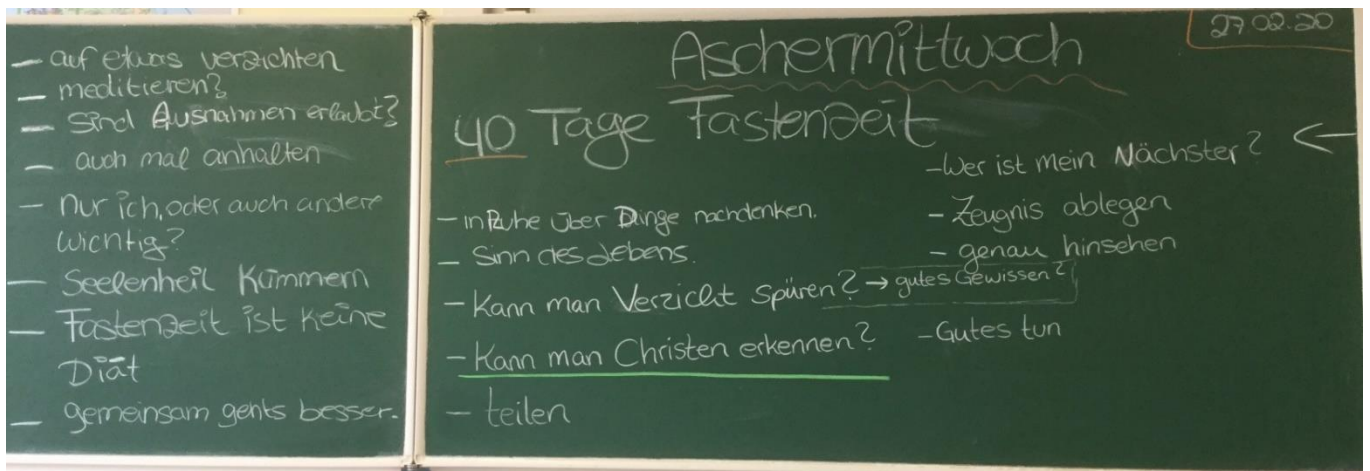 - auf etwas verzichten
- meditieren?
- Sind Ausnahmen erlaubt?
- auch mal anhalten
- Nur ich, oder auch andere
wichtig?
- Seelenheil Kümmern
- Fastenzeit ist keine
Diät
- gemeinsam gehts besser.
27.02.20
Aschermittwoch
40 Tage Fastenzeit
- in Ruhe über Dinge nachdenken.
- Sinn des Lebens.
- Kann man Verzicht spüren? → gutes Gewissen?
- Kann man Christen erkennen?
- teilen
←
- Wer ist mein Nächster?
- Zeugnis ablegen
- genau hinsehen
- Gutes tun